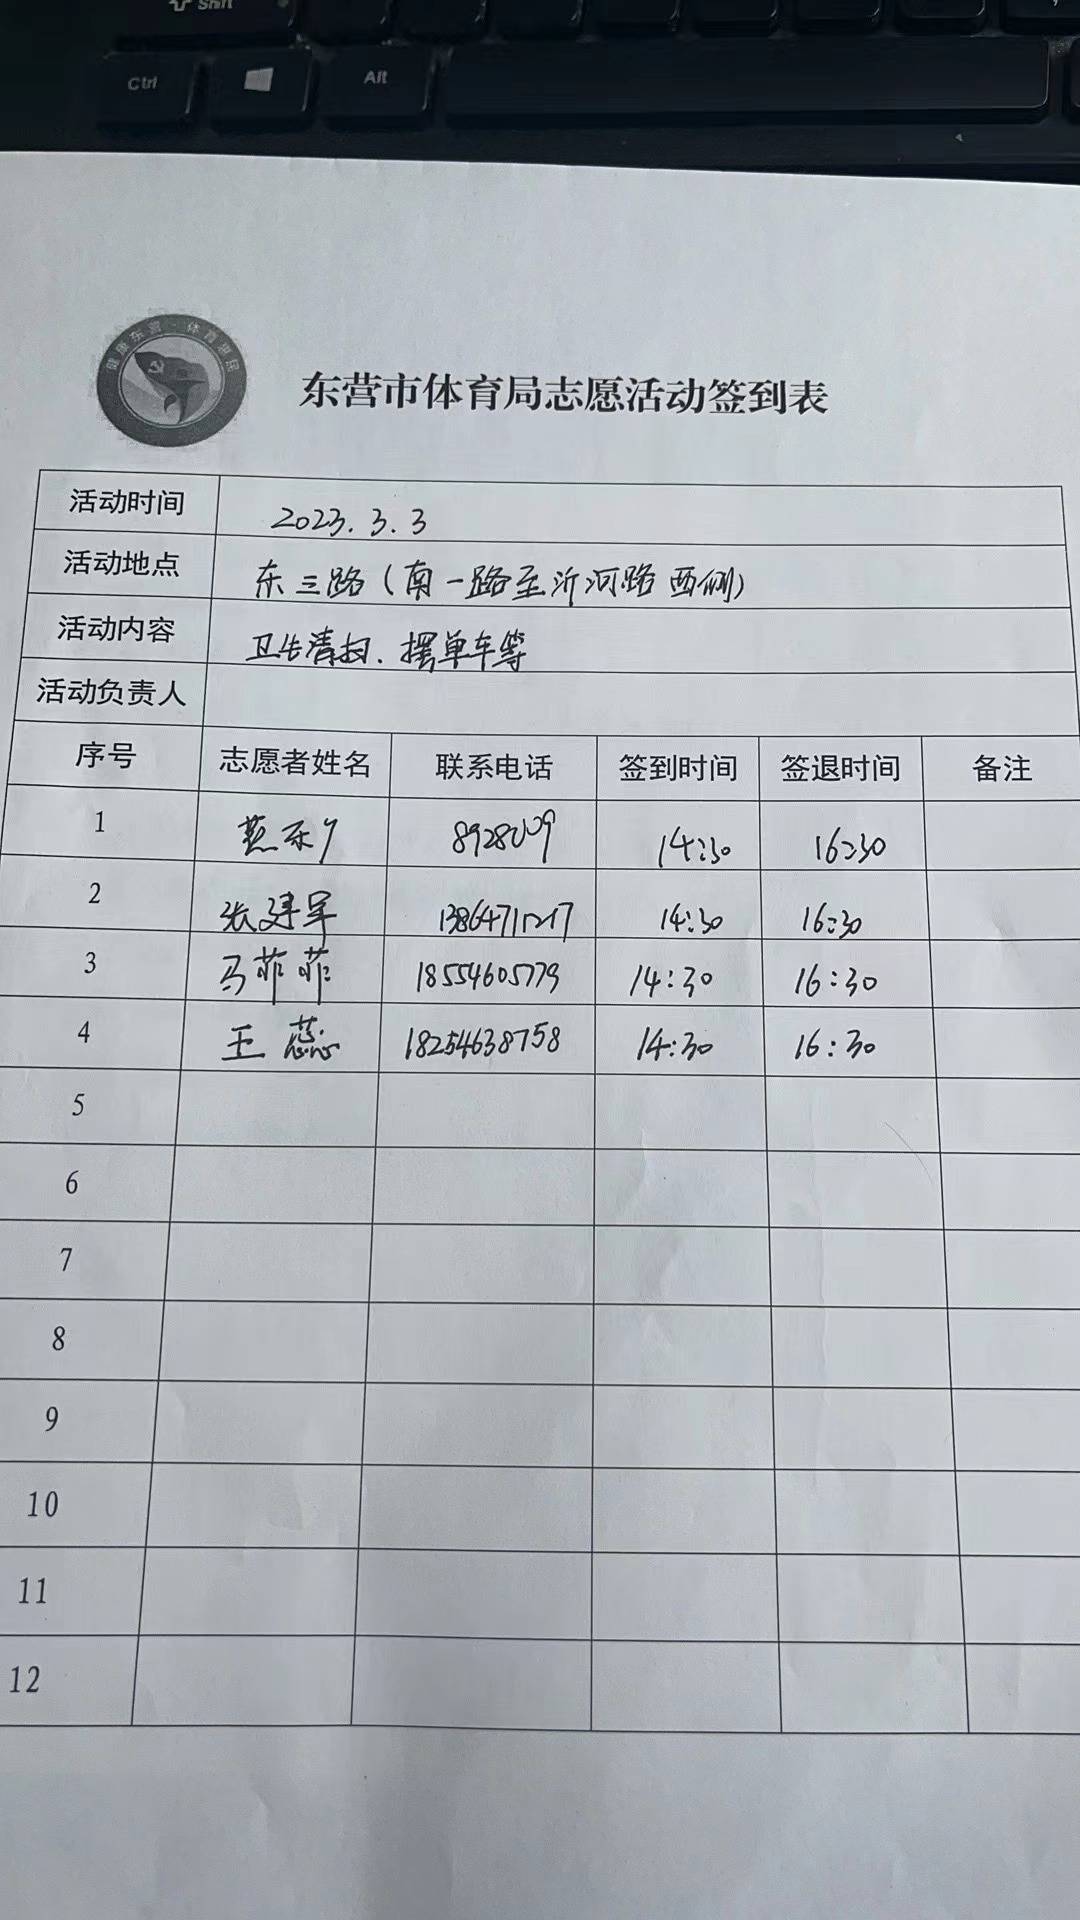 Shift
Ctrl
Alt
健康东营 体育惠民
东营市体育局志愿活动签到表
活动时间 2023.3.3
活动地点 东三路(南一路至沂河路西侧)
活动内容 卫生清扫、摆单车等
活动负责人
序号 志愿者姓名 联系电话 签到时间 签退时间 备注
1 14:30 16:30
2 张建军 14:30 16:30
3 马菲菲 18554605779 14:30 16:30
4 王蕊 18254638758 14:30 16:30
5
6
7
8
9
10
11
12